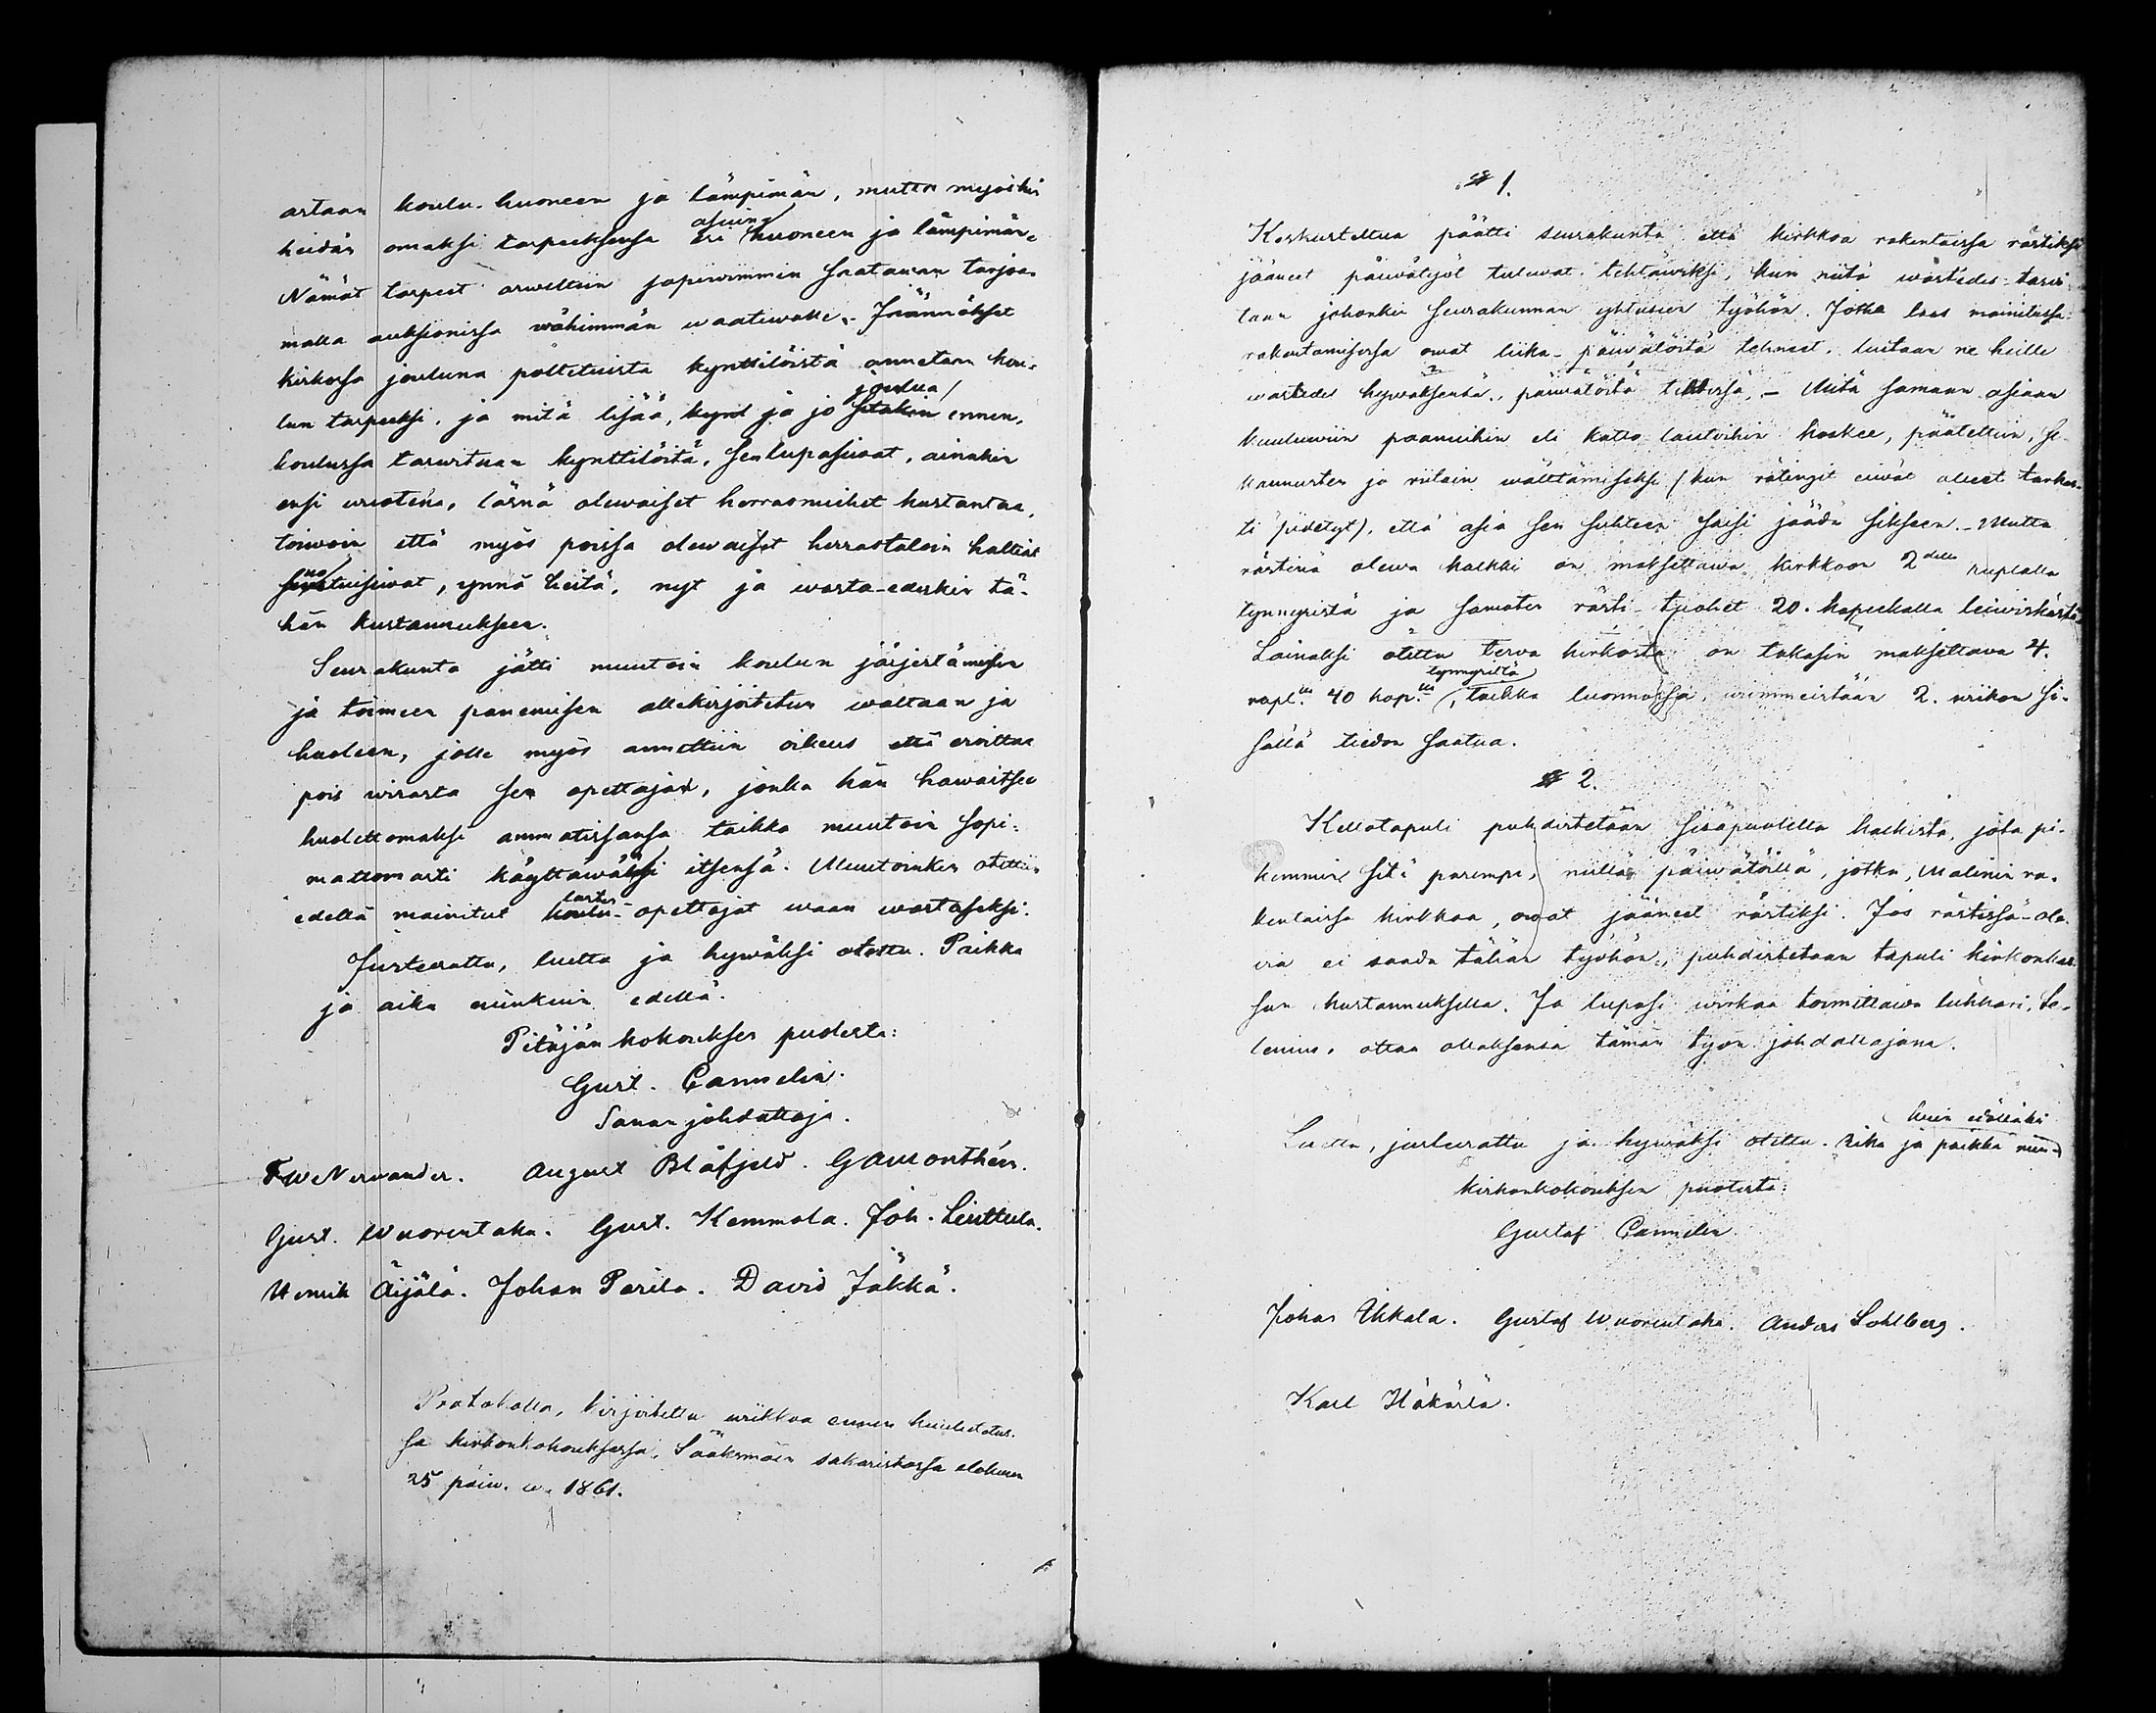 artaan koulu-huoneen ja lämpimän, mutta myöskin
heidän omaksi tarpeeksensa eri asuin huoneen ja lämpimän.
Nämät tarpeet arweltiin sopiwimmin saatawan tarjoa-
malla auksionissa wähimmän waatiwalle. Jäännökset
kirkossa jouluna poltetuista kynttilöistä annetaan kou-
lun tarpeeksi, ja mitä lisää, ja jo ennen joulua
koulussa tarwitaan kynttilöitä, sen lupasiwat, ainakin
ensi wuotena, läsnä olewaiset herrasmiehet kustantaa,
toiwoin että myös poissa olewaiset herrastaloin haltiat
suostuisiwat, ynnä heitä, nyt ja wasta-edeskin tä-
hän kustannukseen.
Seurakunta jätti muutoin koulun järjestämisen
ja toimeen panemisen allekirjoitetun waltaan ja
huoleen, jolle myös annettiin oikeus että eroittaa
pois wirasta sen opettajan, jonka hän hawaitsee
huolettomaksi ammatissansa taikka muutoin sopi-
mattomasti käyttäwäksi itsensä. Muutoinkin otettiin
edellä mainitut lasten opettajat waan wastaseksi.
Justeerattu, luettu ja hywäksi otettu. Paikka
ja aika niinkuin edellä.
Pitäjän kokouksen puolesta:
Gust. Cannelin.
Sanan johdattaja.
F W Nervander. August Blåfjeld. G A Monthén.
Gust. Wuorentaka. Gust. Kemmola. Joh. Lenttula.
Henrik Äijälä. Johan Perila. David Jäkkä.
Protokolla, kirjoitettu wiikkoa ennen kuulutetus-
sa kirkonkokouksessa, Sääksmäen sakaristossa elokuun
25 päiw. w. 1861.
§ 1.
Keskusteltua päätti seurakunta että kirkkoa rakentaissa rästiksi
jääneet päiwätyöt tulewat tehtäwiksi, kun niitä wastedes tarwi-
taan johonkin seurakunnan yhteiseen työhön. Jotka taas mainitussa
rakentamisessa owat liika-päiwätöitä tehneet, luetaan ne heille
wastedes hywäksensä, päiwätöitä tehtessä. – Mitä samaan asiaan
kuuluwiin paanuihin eli katto lautoihin koskee, päätettiin, se-
kaannusten ja riitain wälttämiseksi (kun rätingit eiwät olleet tarkas-
ti pidetyt), että asia sen suhteen saisi jäädä siksensä. – Mutta
rästinä olewa kalkki on maksettawa kirkkoon 2 della ruplalla
tynnyristä ja samaten rästi-tuohet 20. kopeekalla leiwiskästä.
Lainaksi otettu terwa kirkosta on takasin maksettawa 4.
rupl. lla 40 kop. lla tynnyristä, taikka luonnossa, wiimmeistään 2. wiikon si-
sällä tiedon saatua.
§ 2.
Kellotapuli puhdistetaan sisäpuolelta kalkista, jota pi-
kemmin sitä parempi, niillä päiwätöillä, jotka, Malinin ra-
kentaissa kirkkoa, owat jääneet rästiksi. Jos rästissä-ole-
via ei saada tähän työhön, puhdistetaan tapuli kirkonkas-
san kustannuksella. Ja lupasi wirkaa toimittawa lukkari, Se-
lenius, ottaa ollaksensa tämän työn johdattajana.
Luettu, justeerattu ja hywäksi otettu. Aika ja paikka niin-
kuin edelläki
Kirkonkokouksen puolesta:
Gustaf Cannelin
Johan Ukkala. Gustaf Wuorentaka. Anders Sohlberg.
Karl Häkärlä.